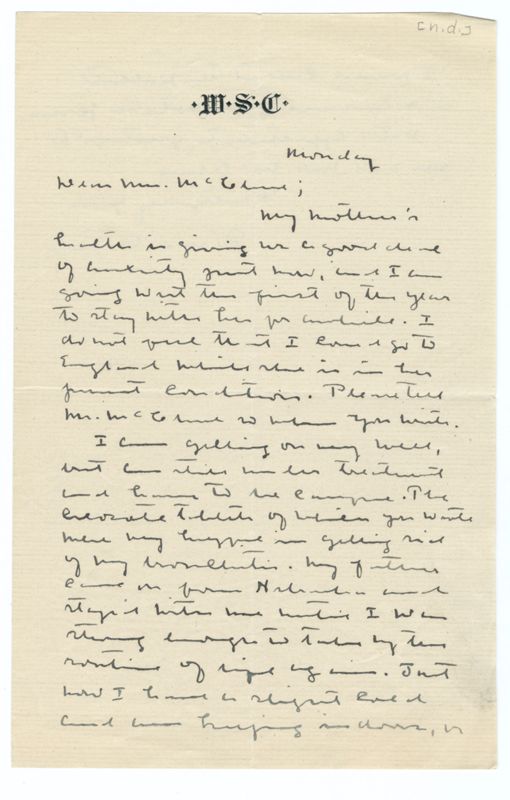 [n.d.]
·W·S·C·
Monday
Dear Mrs. McClure;
My mother's
health is giving me a good deal
of anxiety just now, and I am
going west the first of the year
to stay with her for awhile. I
do not feel that I could go to
England while she is in her
present condition. Please tell
Mr. McClure so when you write.
I am getting on very well,
but am still under treatment
and have to be careful. The
creosote tablets of which you wrote
were very helpful in getting rid
of my bronchitis. My father
came on from Nebraska and
stayed with me until I was
strong enough to take up the
routine of life again. Just
now I have a slight cold
and am keeping indoors, or